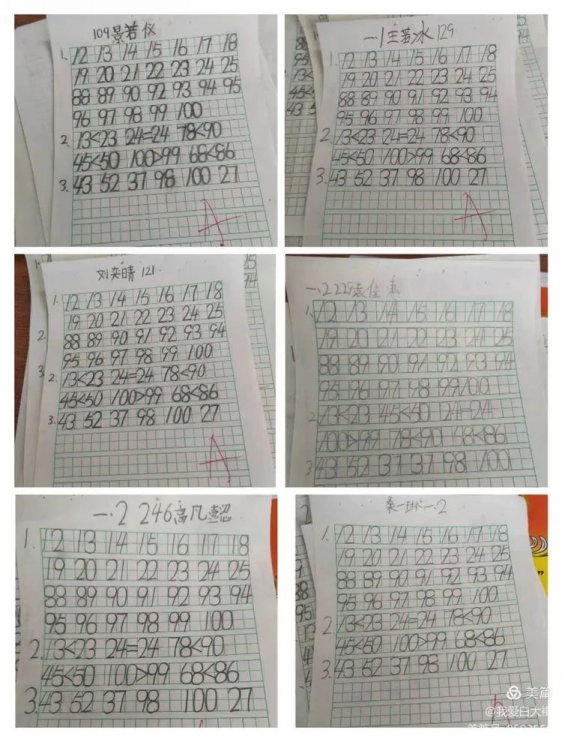 109景若仪
1. 12 13 14 15 16 17 18
19 20 21 22 23 24 25
88 89 90 92 93 94 95
96 97 98 99 100
2. 13<23 24=24 78<90
45<50 100>99 68<86
3. 43 52 37 98 100 27
A
一1王若冰129
1. 12 13 14 15 16 17 18
19 20 21 22 23 24 25
88 89 90 91 92 93 94
95 96 97 98 99 100
2. 13<23 24=24 78<90
45<50 100>99 68<86
3. 43 52 37 98 100 27
A
刘奕晴 121
1. 12 13 14 15 16 17 18
19 20 21 22 23 24 25
88 89 90 91 92 93 94
95 96 97 98 99 100
2. 13<23 24=24 78<90
45<50 100>99 68<86
3. 43 52 37 98 100 27
A
一.2 225 佳
1. 12 13 14 15 16 17 18
19 20 21 22 23 24 25
88 89 90 91 92 93 94
95 96 97 98 99 100
2. 13<23 45<50 24=24
100>99 78<90 68<86
3. 43 52 37 37 98 100
一.2 246高凡懿
1. 12 13 14 15 16 17 18
19 20 21 22 23 24 25
88 89 90 91 92 93 94
95 96 97 98 99 100
2. 13<23 24=24 78<90
45<50 100>99 68<86
3. 43 52 37 98 100 27
桑一琳 一.2
1. 12 13 14 15 16 17 18
19 20 21 22 23 24 25
88 89 90 91 92 93 94
95 96 97 98 99 100
2. 13<23 24=24 78<90
45<50 100>99 68<86
3. 43 52 37 98 100 27
美篇
@我爱白大褂